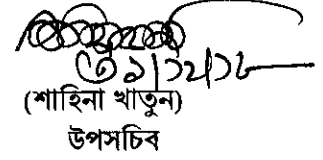 ৩১/১২/১৮
(শাহিনা খাতুন)
উপসচিব